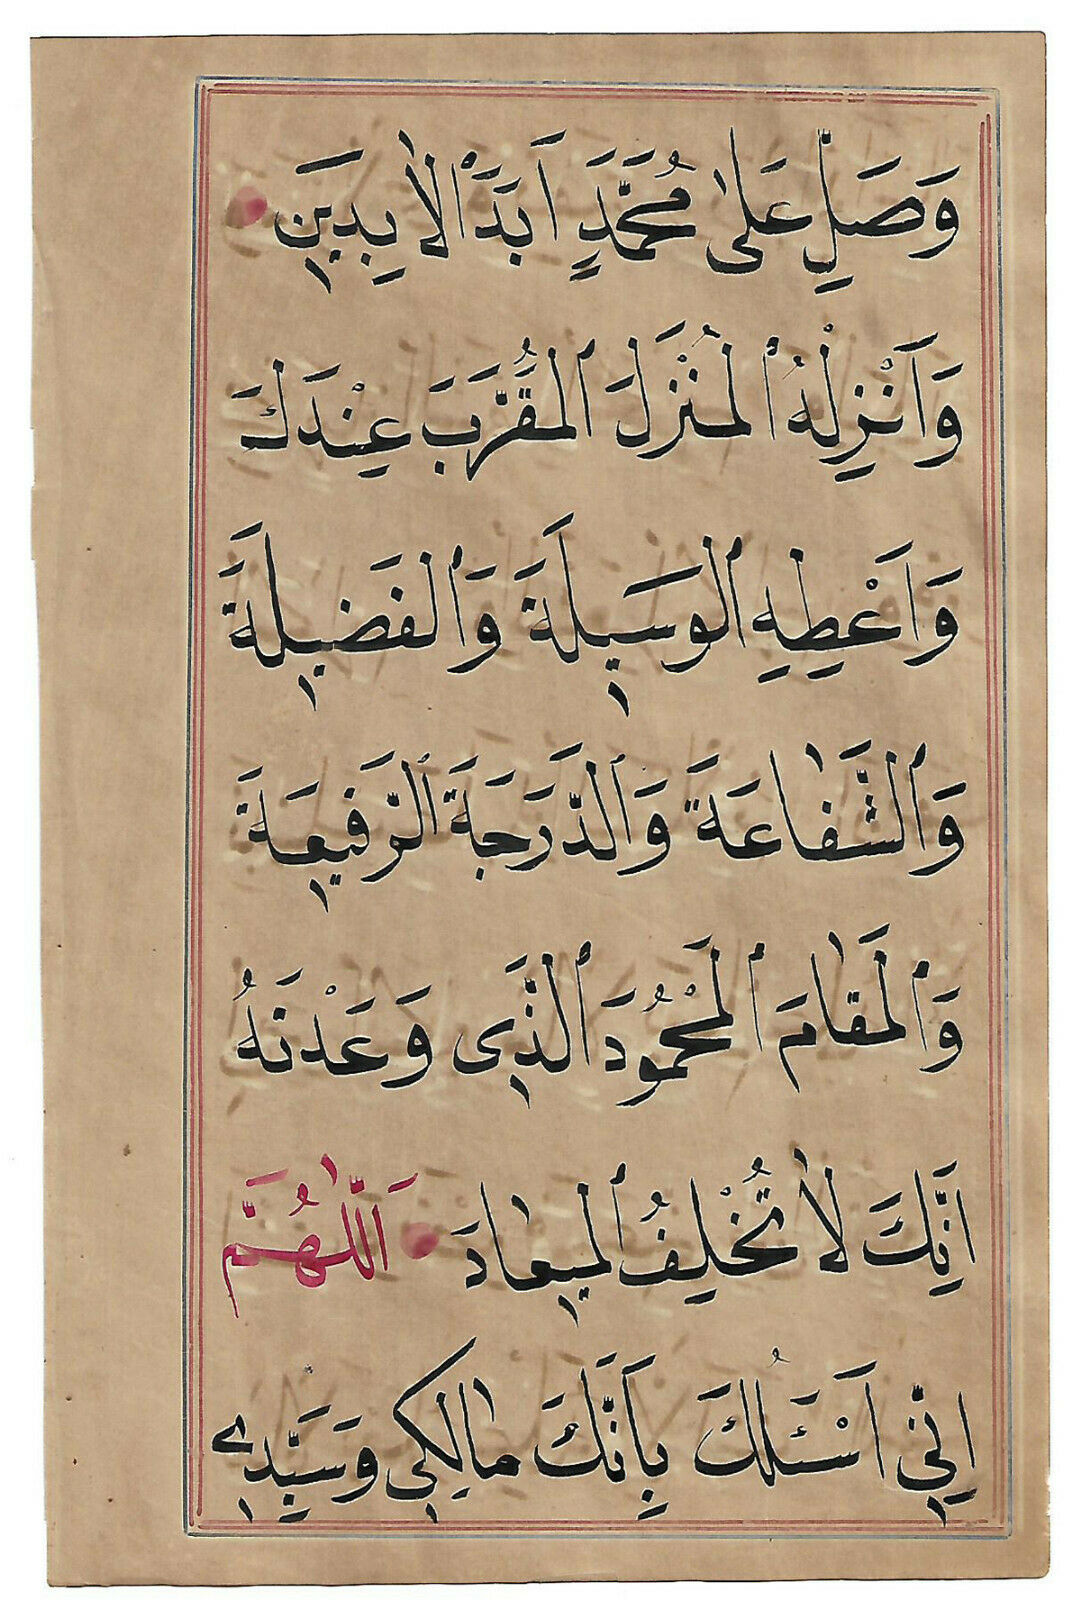 وَصَلِّ عَلٰى مُحَمَّدٍ اَبَدَ الْاٰبِدِينَ
وَاَنْزِلْهُ الْمُنْزَلَ الْمُقَرَّبَ عِنْدَكَ
وَاَعْطِهِ الْوَسِيلَةَ وَالْفَضِيلَةَ
وَالشَّفَاعَةَ وَالدَّرَجَةَ الرَّفِيعَةَ
وَالْمَقَامَ الْمَحْمُودَ الَّذِى وَعَدْتَهُ
اِنَّكَ لَا تُخْلِفُ الْمِيعَادَ اَللّٰهُمَّ
اِنِّى اَسْئَلُكَ بِاَنَّكَ مَالِكِى وَسَيِّدِى